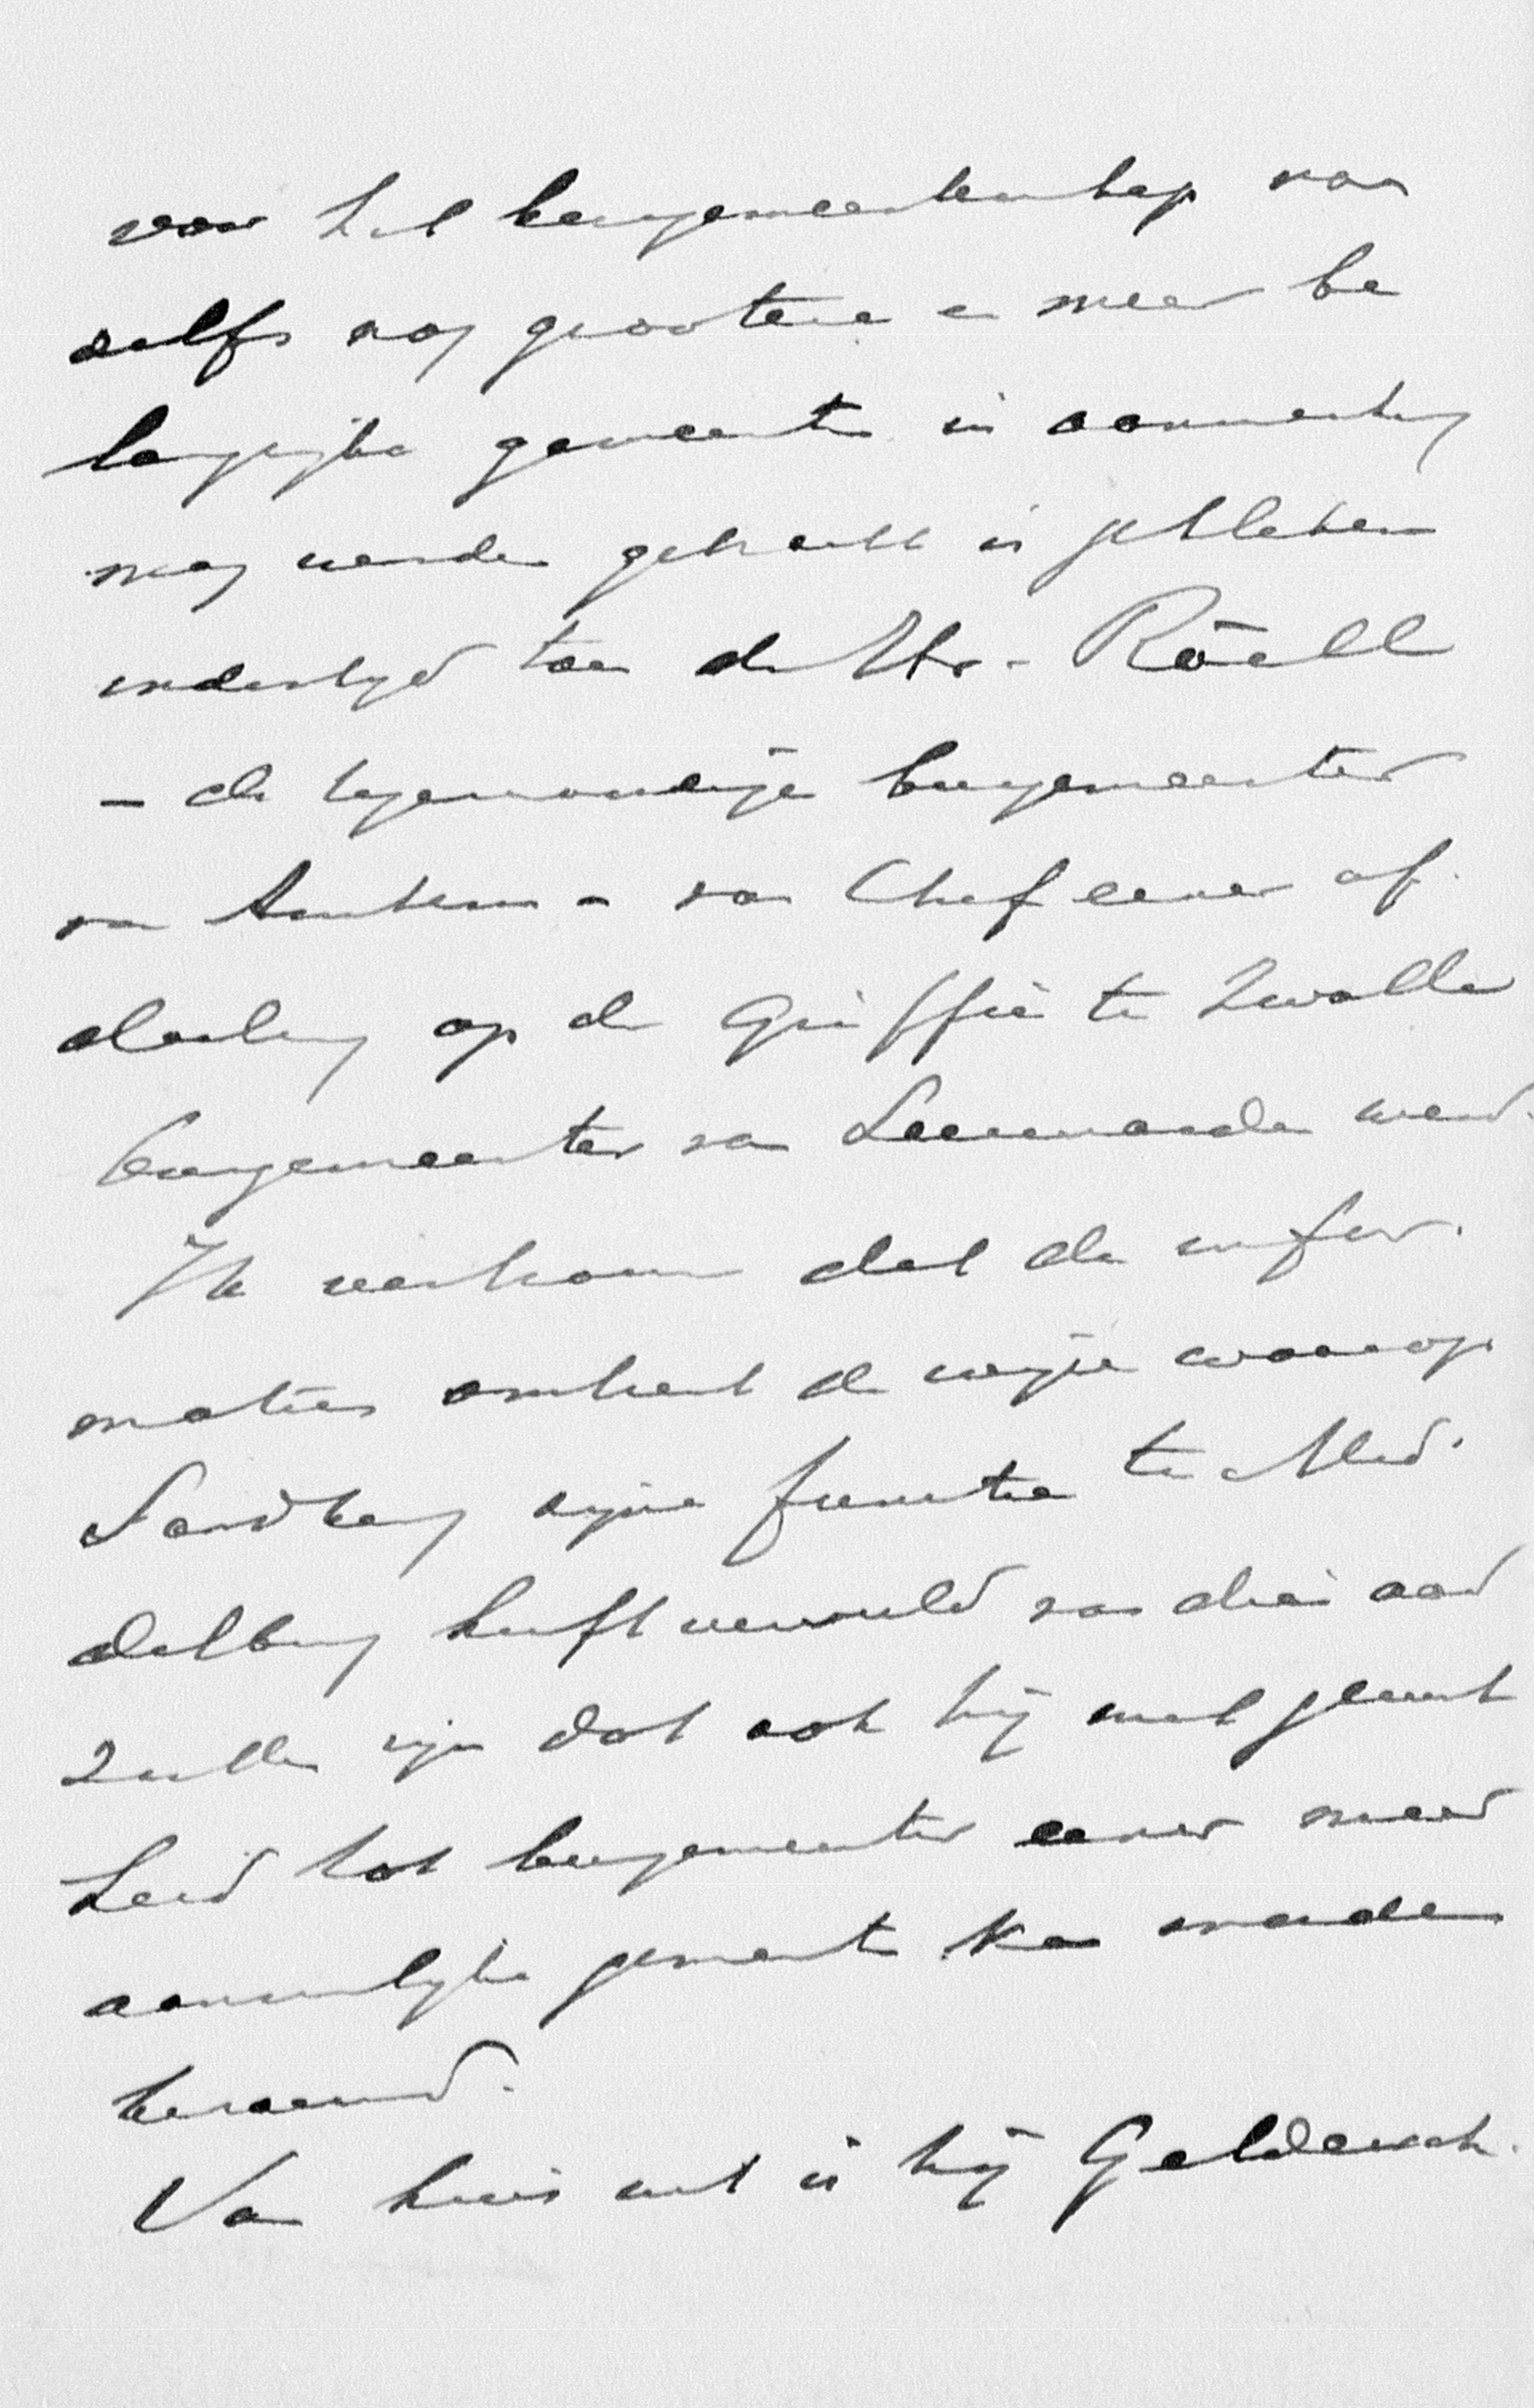 voor het burgemeesterschap van
zelfs nog grootere en meer be
langrijke gemeente in aanmerking
mag worden gebracht is gebleken
indertijd toen de Hr. Röell
– de tegenwoordige burgemeester
van Arnhem – van Chef eener af
deeling op de Griffie te Zwolle
burgemeester van Leeuwarden werd.
Ik vertrouw dat de infor-
maties omtrent de wijze waarop
Sandberg zijne functie te Mid-
delburg heeft vervuld van dien aard
zullen zijn dat ook hij met gerust
heid tot burgemeester eener meer
aanzienlijke gemeente kan worden
benoemd.
Van huis uit is hij Geldersch.